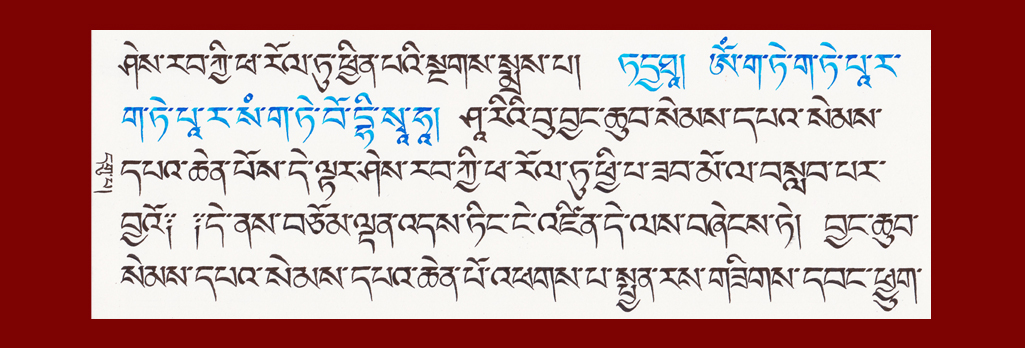 ཤེས་རབ་ཀྱི་ཕ་རོལ་ཏུ་ཕྱིན་པའི་སྔགས་སྨྲས་པ། ཏདྱཐཱ། ཨོཾ་ག་ཏེ་ག་ཏེ་པཱ་ར་
ག་ཏེ་པཱ་ར་སཾ་ག་ཏེ་བོ་དྷི་སྭཱ་ཧཱ། ཤཱ་རིའི་བུ་བྱང་ཆུབ་སེམས་དཔའ་སེམས་
དཔའ་ཆེན་པོས་དེ་ལྟར་ཤེས་རབ་ཀྱི་ཕ་རོལ་ཏུ་ཕྱི་པ་ཟབ་མོ་ལ་བསླབ་པར་
བྱའོ༔ ༔དེ་ནས་བཅོམ་ལྡན་འདས་ཏིང་ངེ་འཛིན་དེ་ལས་བཞེངས་ཏེ། བྱང་ཆུབ་
སེམས་དཔའ་སེམས་དཔའ་ཆེན་པོ་འཕགས་པ་སྤྱན་རས་གཟིགས་དབང་ཕྱུག་